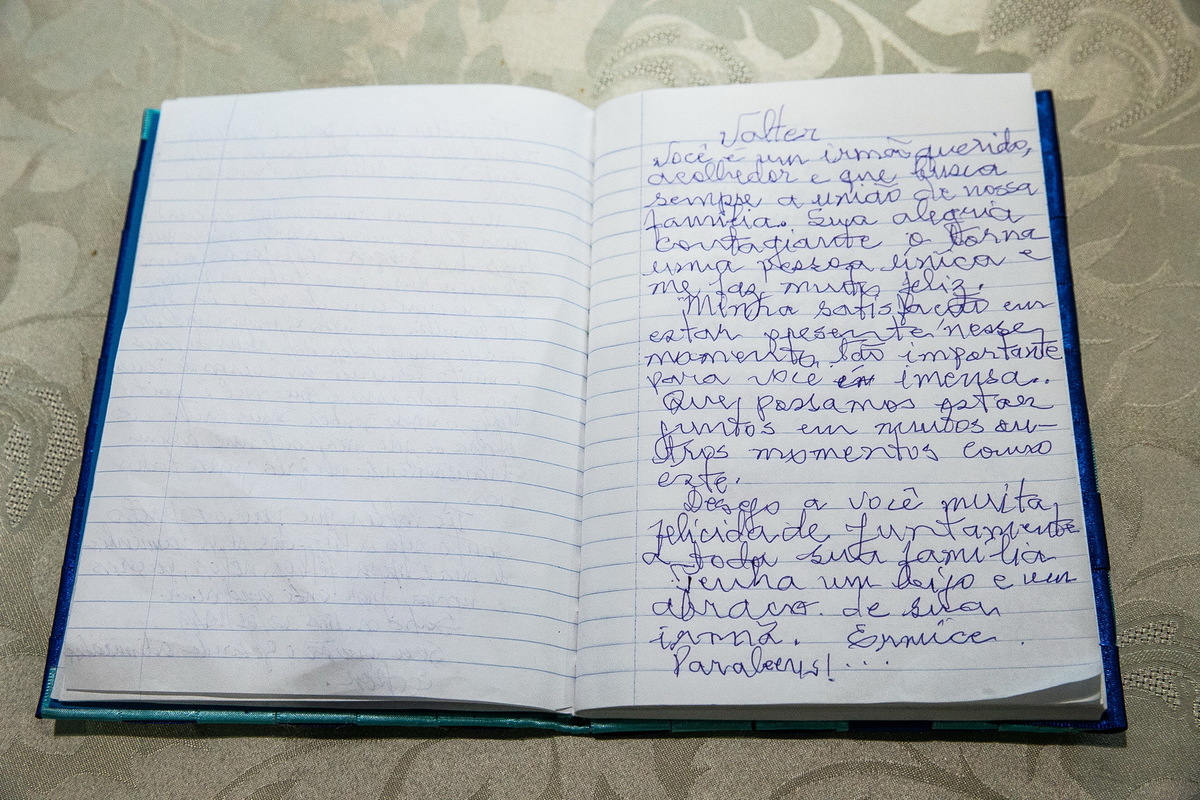 Valter
Você é um irmão querido,
acolhedor e que busca
sempre a união de nossa
família. Sua alegria
contagiante o torna
uma pessoa única e
me faz muito feliz.
Minha satisfação em
estar presente nesse
momento tão importante
para você é imensa..
Que possamos estar
juntos em muitos ou-
tros momentos como
este.
Desejo a você muita
felicidade juntamente
a toda sua família
Tenha um beijo e um
abraço. de sua
irmã. Ernuice.
Parabéns!....